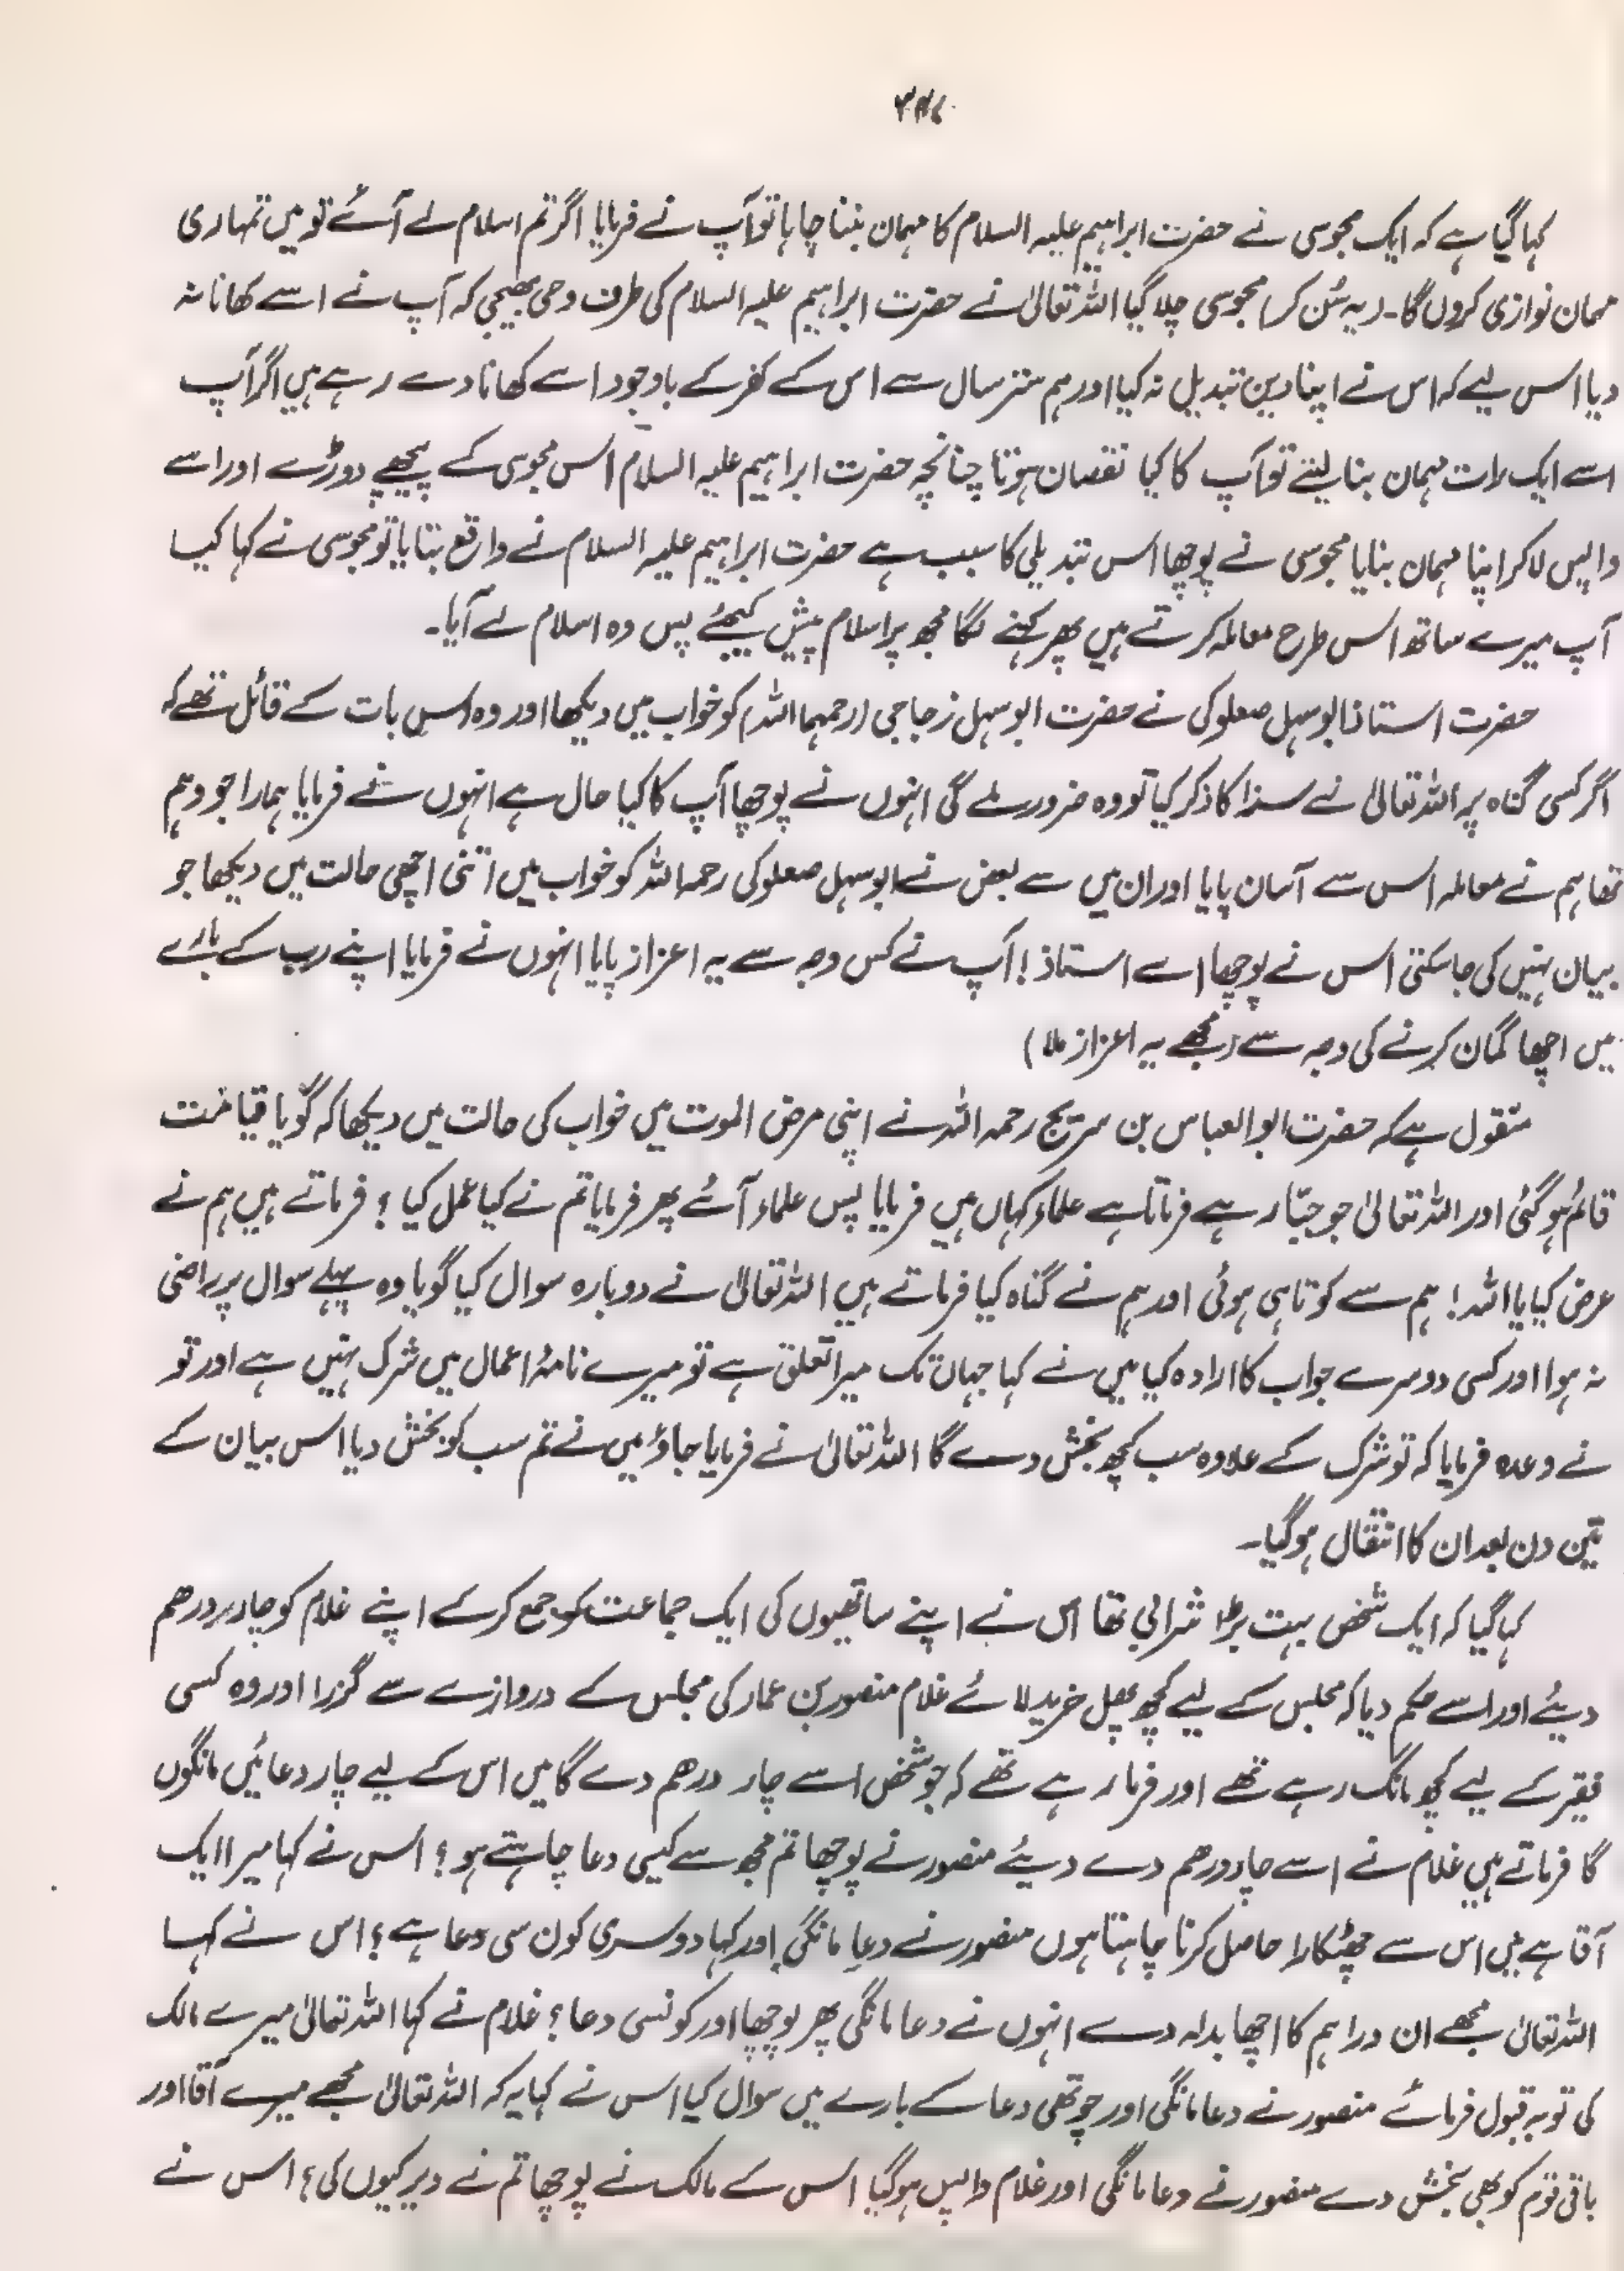 کہا گیا ہے کہ ایک مجوسی نے حضرت ابراہیم علیہ السلام کا مہمان بننا چاہا تو آپ نے فرمایا اگر تم اسلام لے آئے تو میں تمہاری
مہمان نوازی کروں گا۔ (یہ سُن کر) مجوسی چلا گیا اللہ تعالیٰ نے حضرت ابراہیم علیہ السلام کی طرف وحی بھیجی کہ آپ نے اسے کھانا نہ
دیا اس لیے کہ اس نے اپنا دین تبدیل نہ کیا اور ہم ستر سال سے اس کے کفر کے باوجود اسے کھانا دے رہے ہیں اگر آپ
اسے ایک رات مہمان بنا لیتے تو آپ کا کیا نقصان ہوتا چنانچہ حضرت ابراہیم علیہ السلام اس مجوسی کے پیچھے دوڑے اور اسے
واپس لا کر اپنا مہمان بنایا مجوسی نے پوچھا اس تبدیلی کا سبب ہے حضرت ابراہیم علیہ السلام نے واقع بتایا تو مجوسی نے کہا کیا
آپ میرے ساتھ اس طرح معاملہ کرتے ہیں پھر کہنے لگا مجھ پر اسلام پیش کیجئے پس وہ اسلام لے آیا۔
حضرت استاذ ابو سہل صعلوکی نے حضرت ابو سہل زجاجی (رحمہما اللہ) کو خواب میں دیکھا اور وہ اس بات کے قائل تھے کہ
اگر کسی گناہ پر اللہ تعالیٰ نے سزا کا ذکر کیا تو وہ ضرور ملے گی انہوں نے پوچھا آپ کا کیا حال ہے انہوں نے فرمایا ہمارا جو وہم
تھا ہم نے معاملہ اس سے آسان پایا اور ان میں سے بعض نے ابو سہل صعلوکی رحمہ اللہ کو خواب میں اتنی اچھی حالت میں دیکھا جو
بیان نہیں کی جا سکتی اس نے پوچھا اے استاذ! آپ نے کس وجہ سے یہ اعزاز پایا انہوں نے فرمایا اپنے رب کے بارے
میں اچھا گمان کرنے کی وجہ سے (مجھے یہ اعزاز ملا)
منقول ہے کہ حضرت ابو العباس بن سریج رحمہ اللہ نے اپنی مرض الموت میں خواب کی حالت میں دیکھا کہ گویا قیامت
قائم ہو گئی اور اللہ تعالیٰ جو جبّار ہے فرماتا ہے علماء کہاں ہیں فرمایا پس علماء آئے پھر فرمایا تم نے کیا عمل کیا؟ فرماتے ہیں ہم نے
عرض کیا یا اللہ! ہم سے کوتاہی ہوئی اور ہم نے گناہ کیا فرماتے ہیں اللہ تعالیٰ نے دوبارہ سوال کیا گویا وہ پہلے سوال پر راضی
نہ ہوا اور کسی دوسرے جواب کا ارادہ کیا میں نے کہا جہاں تک میرا تعلق ہے تو میرے نامۂ اعمال میں شرک نہیں ہے اور تو
نے وعدہ فرمایا کہ تو شرک کے علاوہ سب کچھ بخش دے گا اللہ تعالیٰ نے فرمایا جاؤ میں نے تم سب کو بخش دیا اس بیان کے
تین دن بعد ان کا انتقال ہو گیا۔
کہا گیا کہ ایک شخص بہت بڑا شرابی تھا اس نے اپنے ساتھیوں کی ایک جماعت کو جمع کر کے اپنے غلام کو چار درھم
دیئے اور اسے حکم دیا کہ مجلس کے لیے کچھ پھل خرید لائے غلام منصور بن عمار کی مجلس کے دروازے سے گزرا اور وہ کسی
فقیر کے لیے کچھ مانگ رہے تھے اور فرما رہے تھے کہ جو شخص اسے چار درھم دے گا میں اس کے لیے چار دعائیں مانگوں
گا فرماتے ہیں غلام نے اسے چار درھم دے دیئے منصور نے پوچھا تم مجھ سے کیسی دعا چاہتے ہو؟ اس نے کہا میرا ایک
آقا ہے میں اس سے چھٹکارا حاصل کرنا چاہتا ہوں منصور نے دعا مانگی اور کہا دوسری کون سی دعا ہے؟ اس نے کہا
اللہ تعالیٰ مجھے ان دراہم کا اچھا بدلہ دے انہوں نے دعا مانگی پھر پوچھا اور کونسی دعا؟ غلام نے کہا اللہ تعالیٰ میرے مالک
کی توبہ قبول فرمائے منصور نے دعا مانگی اور چوتھی دعا کے بارے میں سوال کیا اس نے کہا یہ کہ اللہ تعالیٰ مجھے میرے آقا اور
باقی قوم کو بھی بخش دے منصور نے دعا مانگی اور غلام واپس ہو گیا اس کے مالک نے پوچھا تم نے دیر کیوں کی؟ اس نے